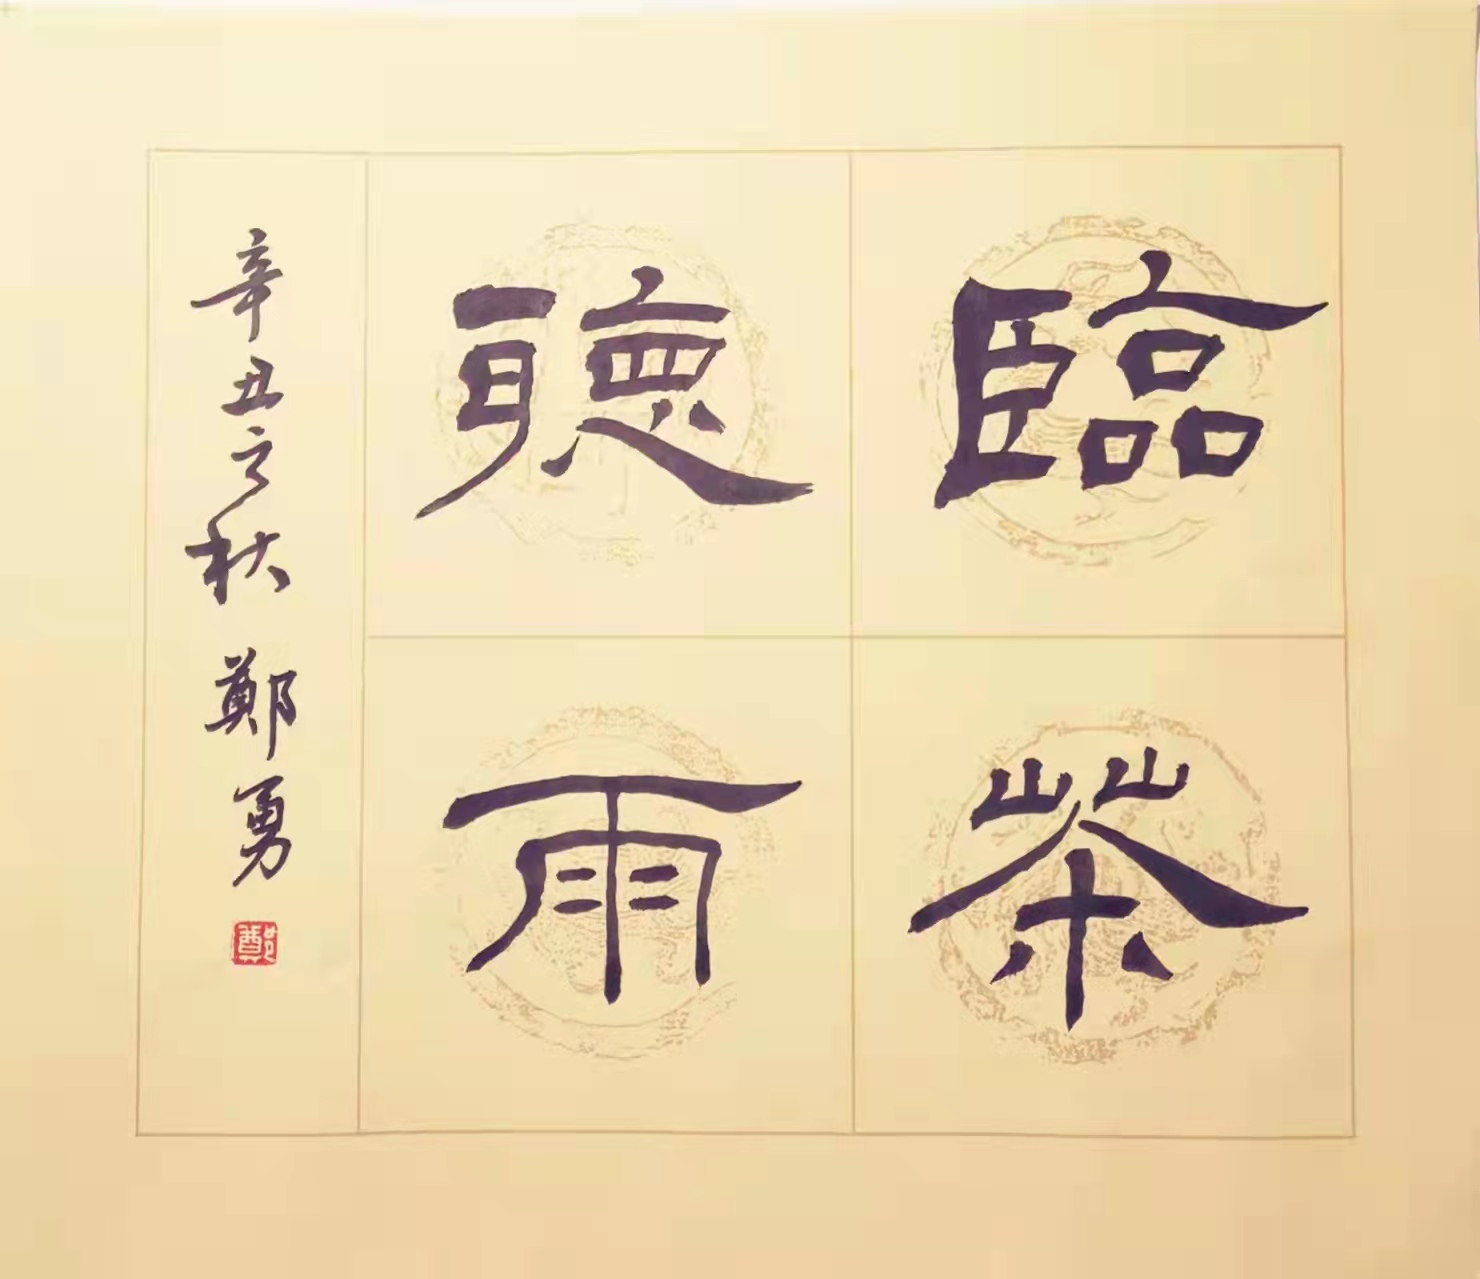 臨茶
聽雨
辛丑之秋 鄭勇
鄭